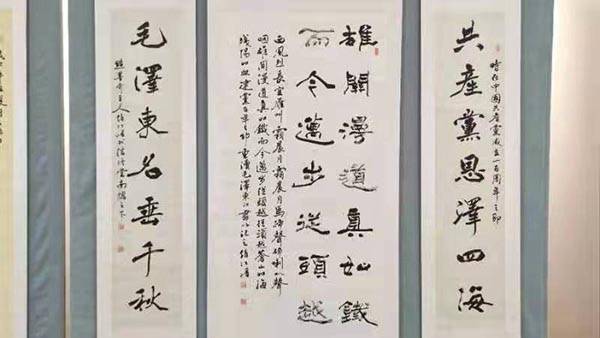 時在中國共產黨成立一百周年之即
共產黨恩澤四海
雄關漫道真如鐵
而今邁步從頭越
西風烈長空雁叫霜晨月霜晨月馬蹄聲碎喇叭聲
咽雄關漫道真如鐵而今邁步從頭越從頭越蒼山如海
殘陽如血建黨百年之即重讀毛澤東
毛澤東名垂千秋